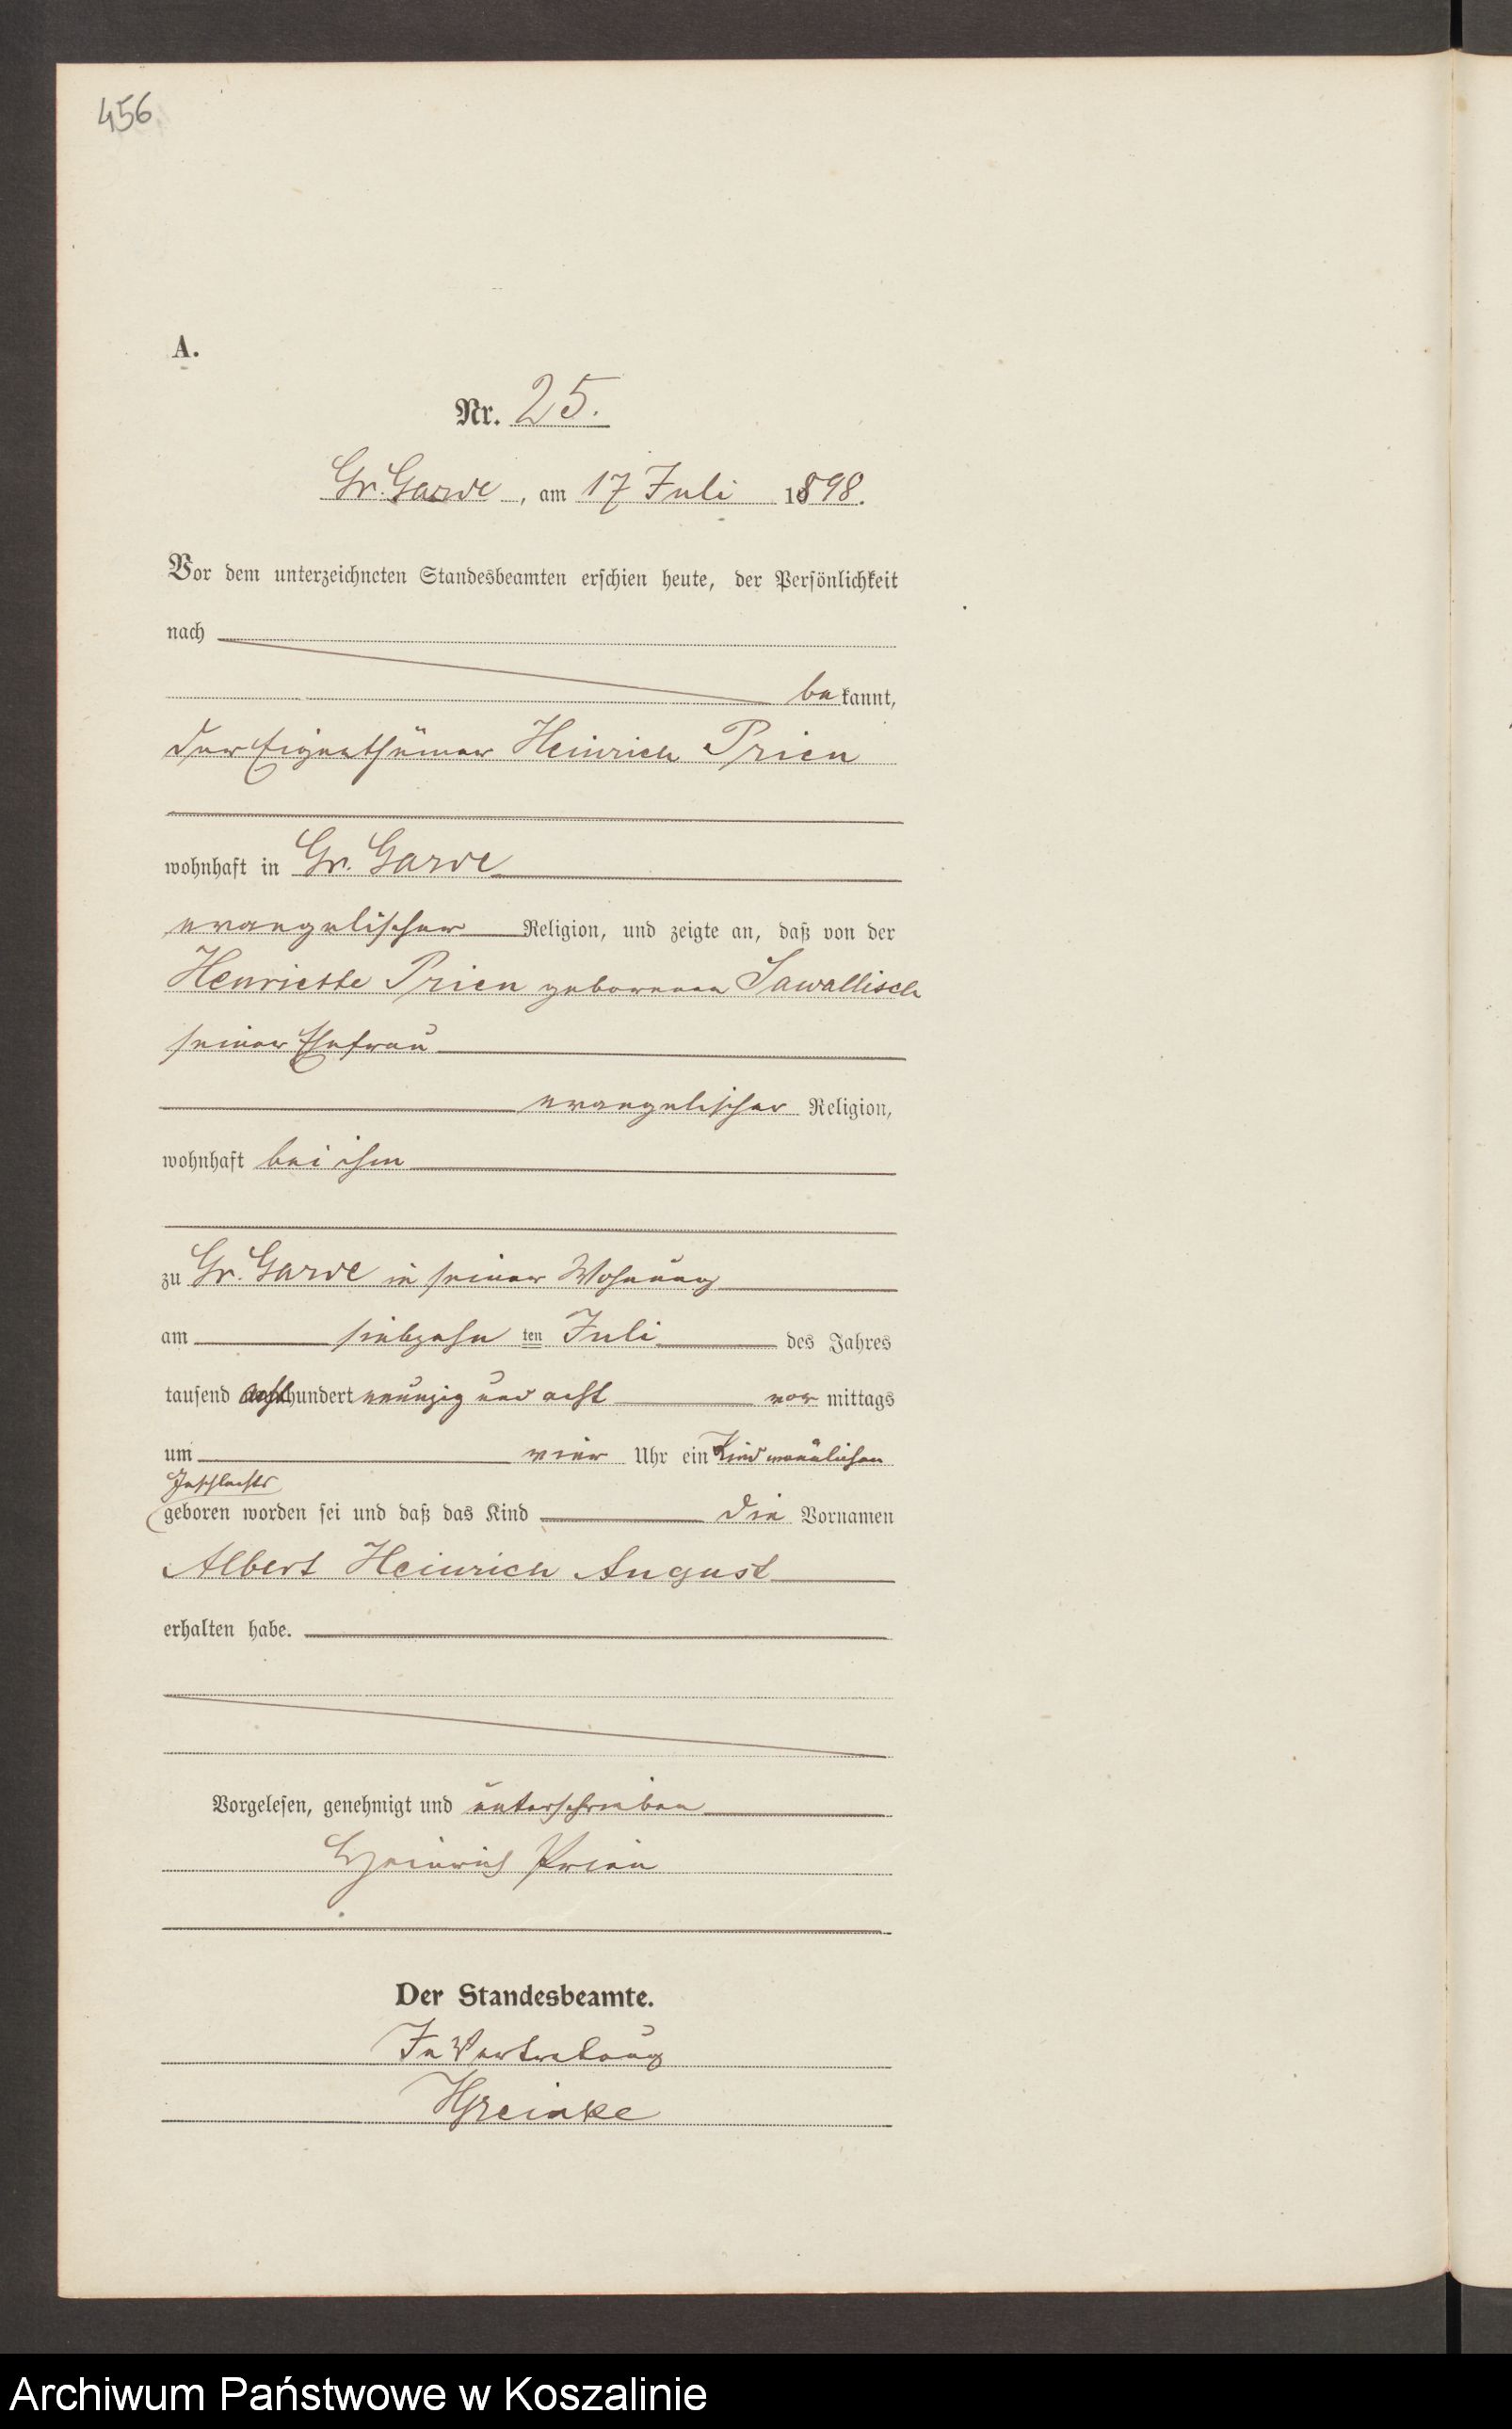 456
A.
Nr. 25.
Gr. Garde, am 17 Juli 1898.
Vor dem unterzeichneten Standesbeamten erschien heute, der Persönlichkeit
nach
bekannt,
der Eigenthümer Heinrich Prien
wohnhaft in Gr. Garde
evangelischer Religion, und zeigte an, daß von der
Henriette Prien geborenen Sawallisch
seiner Ehefrau
evangelischer Religion,
wohnhaft bei ihm
zu Gr. Garde in seiner Wohnung
am siebzehn ten Juli des Jahres
tausend achthundert neunzig und acht vor mittags
um vier Uhr ein Kind männlichen
Geschlechts
geboren worden sei und daß das Kind die Vornamen
Albert Heinrich August
erhalten habe.
Vorgelesen, genehmigt und unterschrieben
Heinrich Prien
Der Standesbeamte.
In Vertretung
HReinke
Archiwum Państwowe w Koszalinie